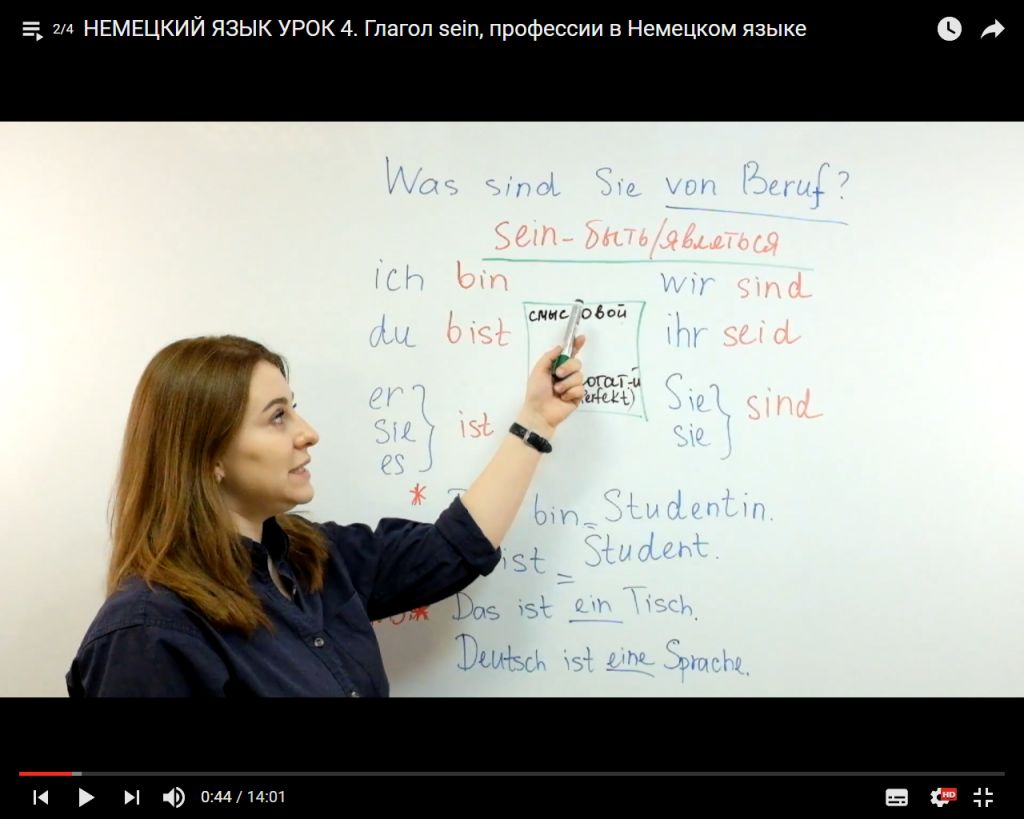 2/4 НЕМЕЦКИЙ ЯЗЫК УРОК 4. Глагол sein, профессии в Немецком языке
Was sind Sie von Beruf?
sein - быть/являться
ich bin
wir sind
du bist
смысловой
ihr seid
er
sie
es
ist
Sie
sie
sind
*
bin Studentin.
ist Student.
* Das ist ein Tisch.
Deutsch ist eine Sprache.
0:44 / 14:01
HD